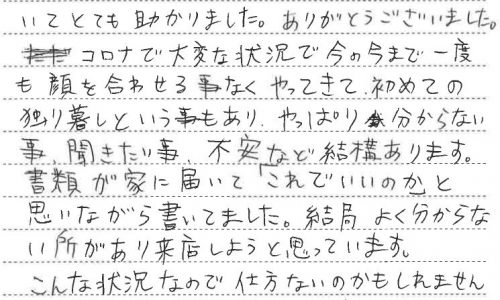 いてとても助かりました。ありがとうございました。
コロナで大変な状況で今の今まで一度
も顔を合わせる事なくやってきて、初めての
独り暮しという事もあり、やっぱり分からない
事、聞きたい事、不安など結構あります。
書類が家に届いて「これでいいのか」と
思いながら書いてました。結局よく分からな
い所があり来店しようと思っています。
こんな状況なので仕方ないのかもしれません